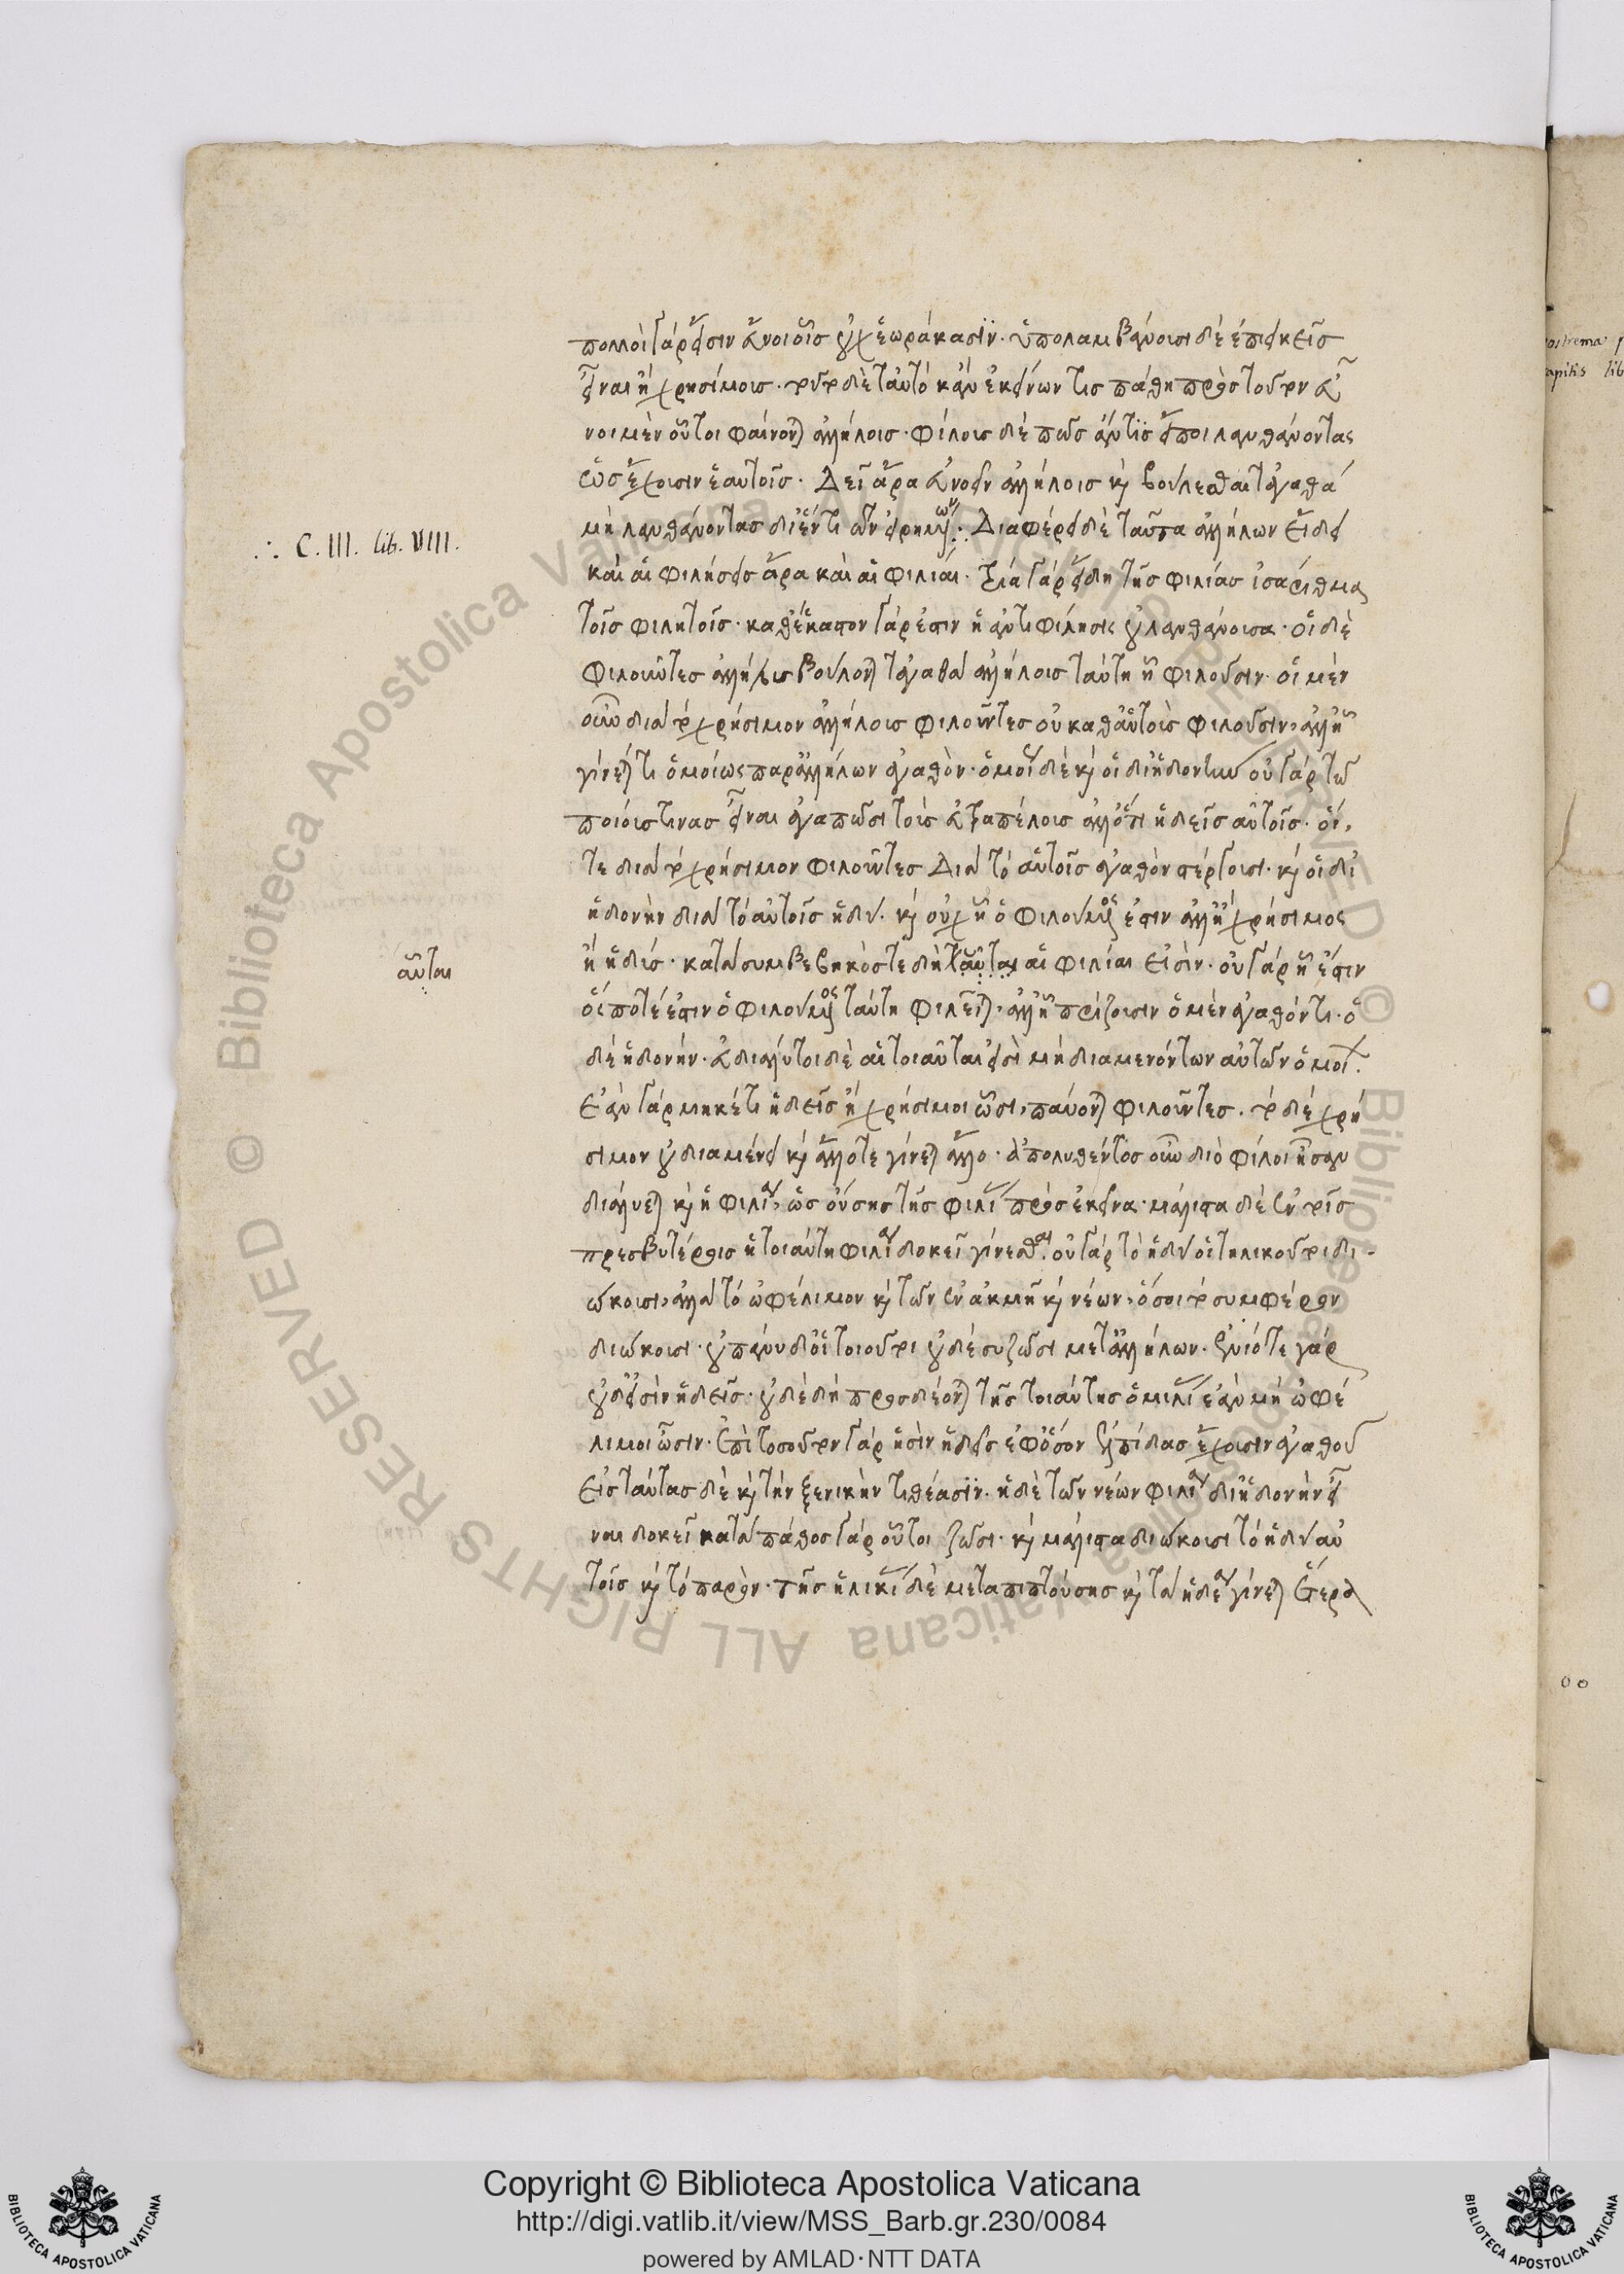 πολλοὶ γάρ εἰσιν εὖνοι οἷς οὐχ ἑωράκασιν. ὑπολαμβάνουσι δὲ ἐπιεικεῖς
εἶναι ἢ χρησίμους. τοῦτο δὲ ταὐτὸ κἂν ἐκείνων τις πάθῃ πρὸς τοῦτον εὖ
νοι μὲν οὗτοι φαίνονται ἀλλήλοις. φίλους δὲ πῶς ἄν τις εἴποι λανθάνοντας
ὡς ἔχουσιν ἑαυτοῖς. Δεῖ ἄρα εὐνοεῖν ἀλλήλοις καὶ βούλεσθαι τἀγαθὰ
μὴ λανθάνοντας δι' ἕν τι τῶν εἰρημένων ∴ Διαφέρει δὲ ταῦτα ἀλλήλων εἴδει
∴ C. III. lib. VIII.
καὶ αἱ φιλήσεις ἄρα καὶ αἱ φιλίαι. τρία γάρ εἴδη τῆς φιλίας ἰσάριθμα
τοῖς φιλητοῖς. καθ' ἕκαστον γάρ ἐστιν ἡ ἀντιφίλησις οὐ λανθάνουσα. οἱ δὲ
φιλοῦντες ἀλλήλους βούλονται τἀγαθὰ ἀλλήλοις ταύτῃ ᾗ φιλοῦσιν. οἱ μὲν
οὖν διὰ τὸ χρήσιμον ἀλλήλους φιλοῦντες οὐ καθ' αὑτοὺς φιλοῦσιν, ἀλλ' ᾗ
γίνεταί τι ὁμοίως παρ' ἀλλήλων ἀγαθόν. ὁμοίως δὲ καὶ οἱ δι' ἡδονήν οὐ γὰρ τῷ
ποιούς τινας εἶναι ἀγαπῶσι τοὺς εὐτραπέλους ἀλλ' ὅτι ἡδεῖς αὑτοῖς. οἵ,
τε διὰ τὸ χρήσιμον φιλοῦντες Διὰ τὸ αὑτοῖς ἀγαθὸν στέργουσι. καὶ οἱ δι'
ἡδονὴν διὰ τὸ αὑτοῖς ἡδύ. καὶ οὐχ ᾗ ὁ φιλούμενός ἐστιν ἀλλ' ᾗ χρήσιμος
ἢ ἡδύς. κατὰ συμβεβηκός τε δὴ ταῦται αἱ φιλίαι εἰσίν. οὐ γὰρ ᾗ ἐστιν
αὗται
ὅς ποτέ ἐστιν ὁ φιλούμενος ταύτῃ φιλεῖται. ἀλλ' ᾗ πορίζουσιν ὁ μὲν ἀγαθόν τι. ὁ
δὲ ἡδονήν. εὐδιάλυτοι δὲ αἱ τοιαῦται εἰσὶ μὴ διαμενόντων αὐτῶν ὁμοίων.
Ἐὰν γὰρ μηκέτι ἡδεῖς ἢ χρήσιμοι ὦσι, παύονται φιλοῦντες. τὸ δὲ χρή
σιμον οὐ διαμένει καὶ ἄλλοτε γίνεται ἄλλο. ἀπολυθέντος οὖν διὸ φίλοι ἦσαν
διαλύεται καὶ ἡ φιλία, ὡς οὔσης τῆς φιλίας πρὸς ἐκεῖνα. μάλιστα δὲ ἐν τοῖς
πρεσβυτέροις ἡ τοιαύτη φιλία δοκεῖ γίνεσθαι. οὐ γὰρ τὸ ἡδὺ οἱ τηλικοῦτοι δι-
ώκουσι, ἀλλὰ τὸ ὠφέλιμον καὶ τῶν ἐν ἀκμῇ καὶ νέων, ὅσοι τὸ συμφέρον
διώκουσι. οὐ πάνυ δ' οἱ τοιοῦτοι οὐδὲ συζῶσι μετ' ἀλλήλων. ἐνίοτε γὰρ
οὐδ' εἰσὶν ἡδεῖς. οὐδὲ δὴ προσδέονται τῆς τοιαύτης ὁμιλίας ἐὰν μὴ ὠφέ
λιμοι ὦσιν. Ἐπὶ τοσοῦτον γάρ εἰσὶν ἡδεῖς ἐφ' ὅσον ἐλπίδας ἔχουσιν ἀγαθοῦ
Εἰς ταύτας δὲ καὶ τὴν ξενικὴν τιθέασιν. ἡ δὲ τῶν νέων φιλία δι' ἡδονὴν εἶ
ναι δοκεῖ κατὰ πάθος γὰρ οὗτοι ζῶσι. καὶ μάλιστα διώκουσι τὸ ἡδὺ αὑ
τοῖς καὶ τὸ παρόν. τῆς ἡλικίας δὲ μεταπιπτούσης καὶ τὰ ἡδέα γίνεται ἕτερα
Copyright © Biblioteca Apostolica Vaticana
http://digi.vatlib.it/view/MSS_Barb.gr.230/0084
powered by AMLAD·NTT DATA